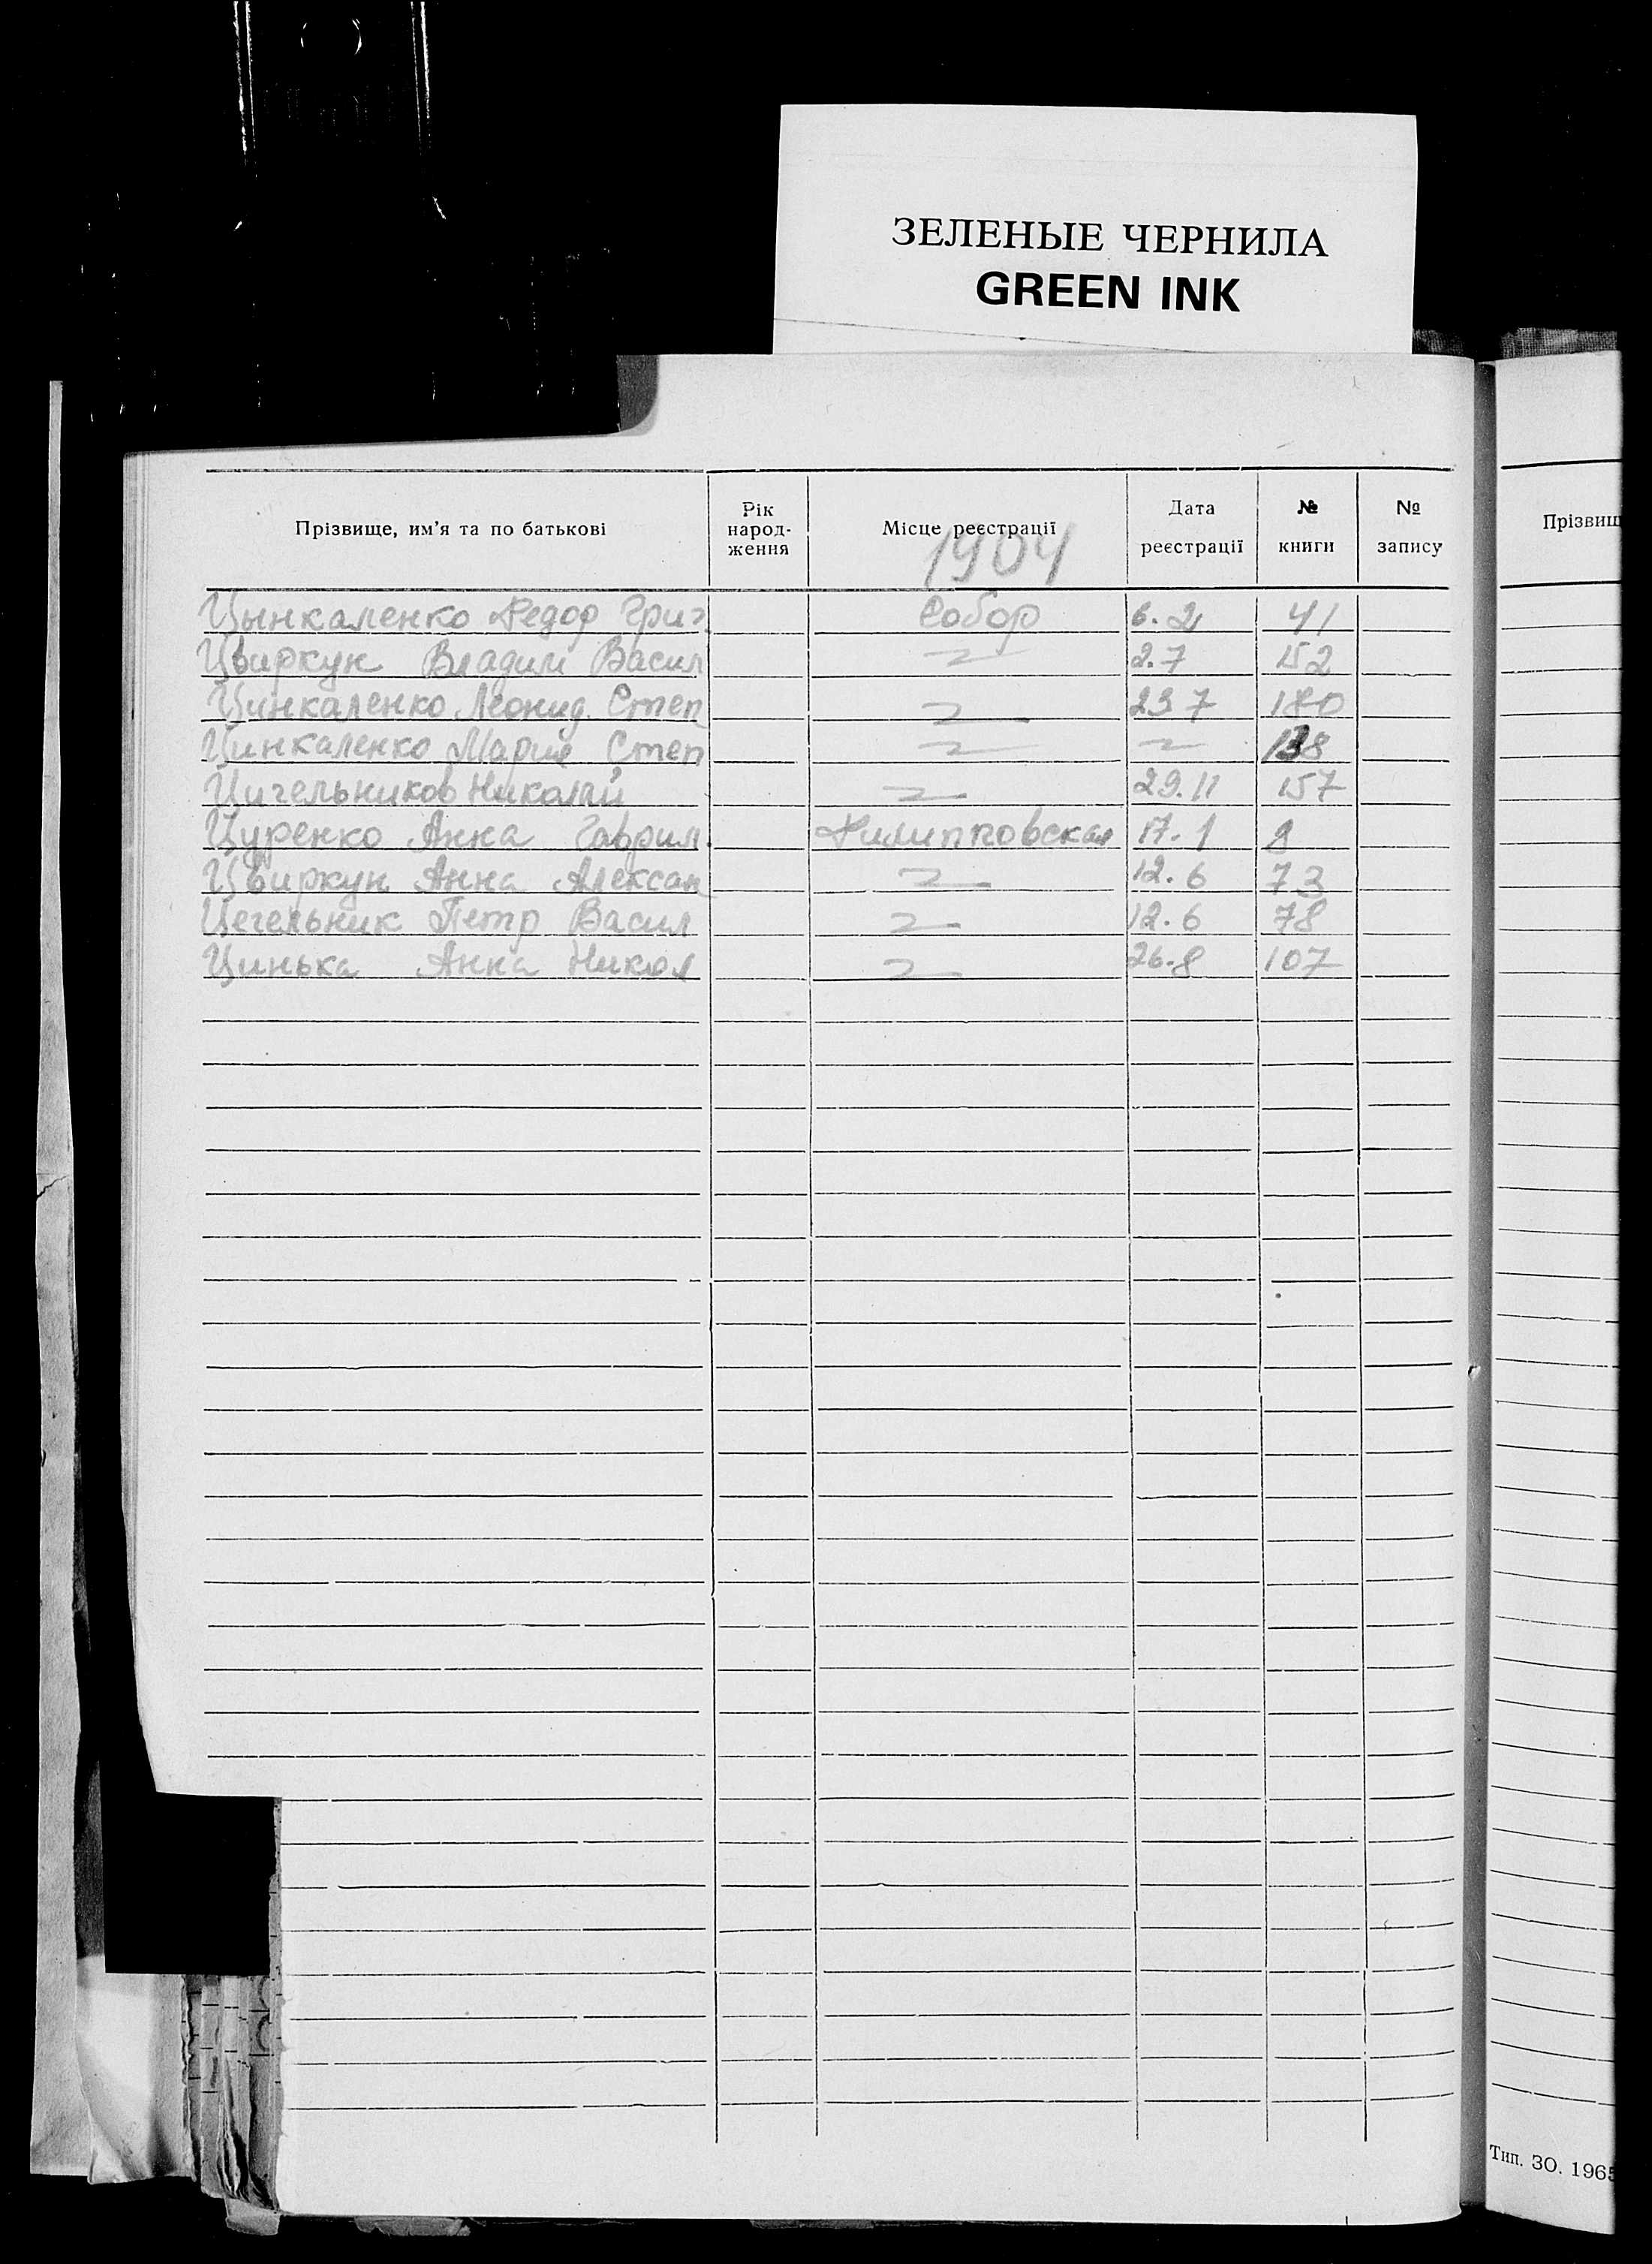 ЗЕЛЕНЫЕ ЧЕРНИЛА
GREEN INK
Прізвище, им'я та по батькові Рік народ-ження Місце реєстрації Дата реєстрації № книги № запису
1904
Цынкаленко Федор Григ. Собор 6.2 41
Цвиркун Владим Васил 2.7 152
Цинкаленко Леонид. Степ 23 7 180
Цинкаленко Мария Степ
Цигельников Николай 29.11 157
Цуренко Анна Гаврил. Филипповская 17.1 8
Цвиркун Анна Алексан 12.6 73
Цегельник Петр Васил 12.6 78
Цинька Анна Никол 26.8 107
Прізвищ
Тип. ЗО. 1965